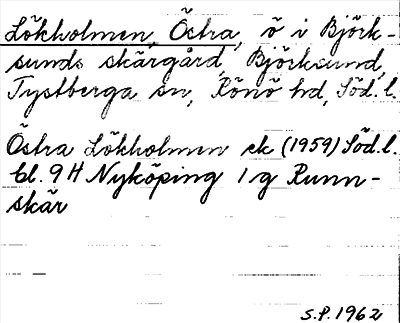 Lökholmen, Östra, ö i Björk-
sunds skärgård, Björksund,
Tystberga sn, Rönö hd, Söd.l.
Östra Lökholmen ek (1959) Söd.l.
bl. 9 H Nyköping 1 g Runn-
skär
S.P. 1962